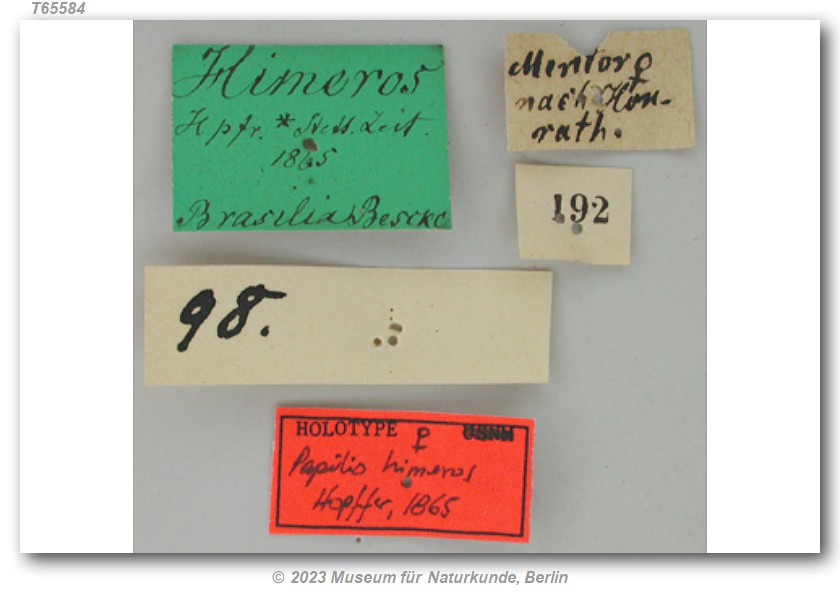 T65584
Himeros
Hpfr. * Stett. Zeit.
1865
Brasilia Bescke
Mentor ♀
nach Hon-
rath.
192
98.
HOLOTYPE ♀ USNM
Papilio himeros
Hopffer, 1865
© 2023 Museum für Naturkunde, Berlin